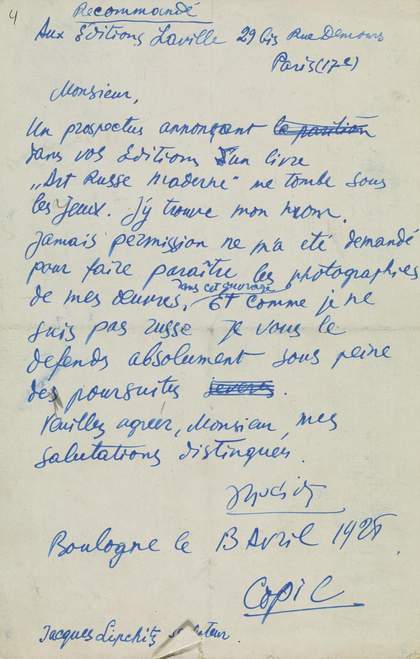 4
Recommandé
Aux Éditions Laville 29 bis Rue Demours
Paris (17-e)
Monsieur,
Un prospectus annonçant la parution
dans vos Éditions d'un livre
„Art Russe moderne" me tombe sous
les yeux. J'y trouve mon nom.
Jamais permission ne m'a été demandé
pour faire paraître les photographies
de mes œuvres, dans cet ouvrage Et comme je ne
suis pas russe je vous le
defends absolument sous peine
des poursuites severes.
Veuillez agreer, Monsieur, mes
salutations distingues.
Boulogne le 13 Avril 192
Copie
Jacques Lipchitz sculpteur.